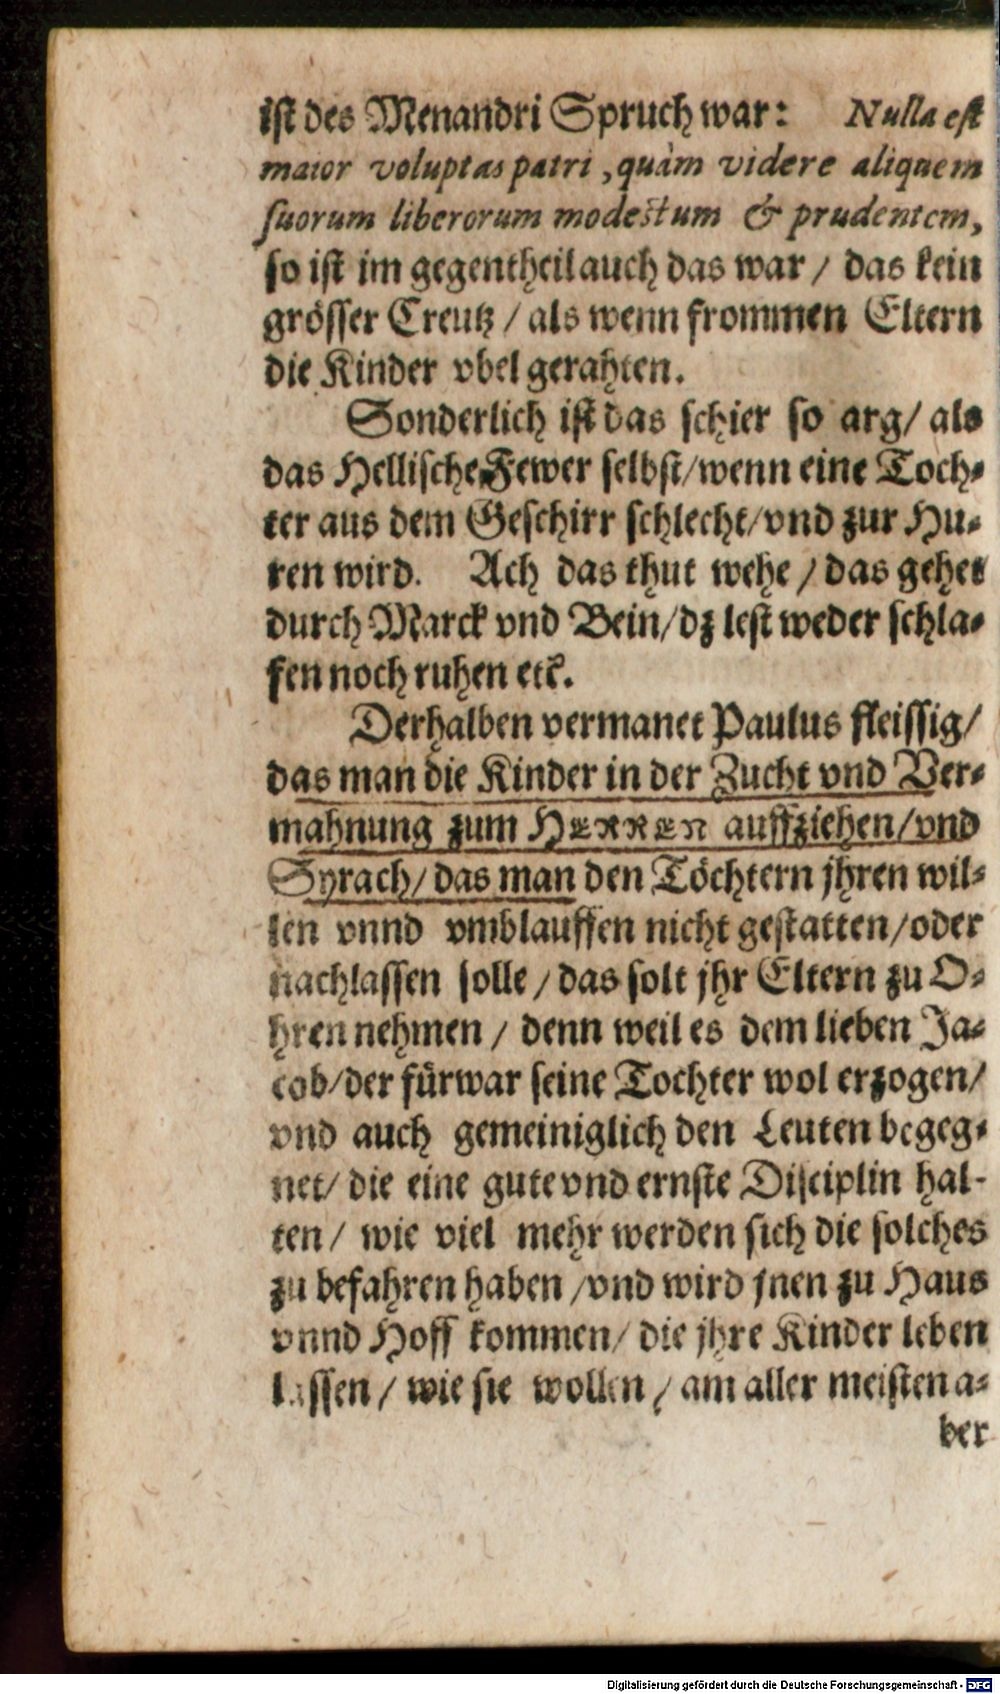 ist des Menandri Spruch war: Nulla est
maior voluptas patri, quàm videre aliquem
suorum liberorum modestum & prudentem,
so ist im gegentheil auch das war / das kein
grösser Creutz / als wenn frommen Eltern
die Kinder vbel gerahten.
Sonderlich ist das schier so arg / als
das Hellische Fewer selbst / wenn eine Toch-
ter aus dem Geschirr schlecht / vnd zur Hu-
ren wird. Ach das thut wehe / das gehet
durch Marck vnd Bein / dz lest weder schla-
fen noch ruhen etc.
Derhalben vermanet Paulus fleissig /
das man die Kinder in der Zucht vnd Ver-
mahnung zum HERREN auffziehen / vnd
Syrach / das man den Töchtern jhren wil-
len vnnd vmblauffen nicht gestatten / oder
nachlassen solle / das solt jhr Eltern zu O-
hren nehmen / denn weil es dem lieben Ja-
cob / der fürwar seine Tochter wol erzogen /
vnd auch gemeiniglich den Leuten begeg-
net / die eine gute vnd ernste Disciplin hal-
ten / wie viel mehr werden sich die solches
zu befahren haben / vnd wird jnen zu Haus
vnnd Hoff kommen / die jhre Kinder leben
lassen / wie sie wollen / am aller meisten a-
ber
Digitalisierung gefördert durch die Deutsche Forschungsgemeinschaft - DFG